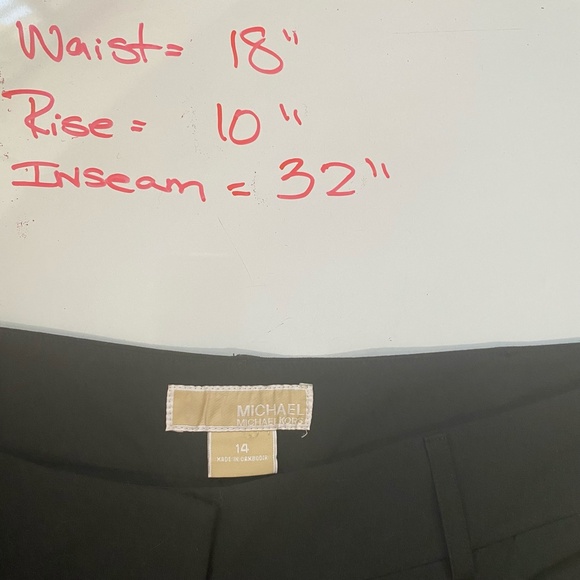 Waist= 18"
Rise= 10"
Inseam = 32"
MICHAEL
MICHAEL KORS
14
MADE IN CAMBODIA